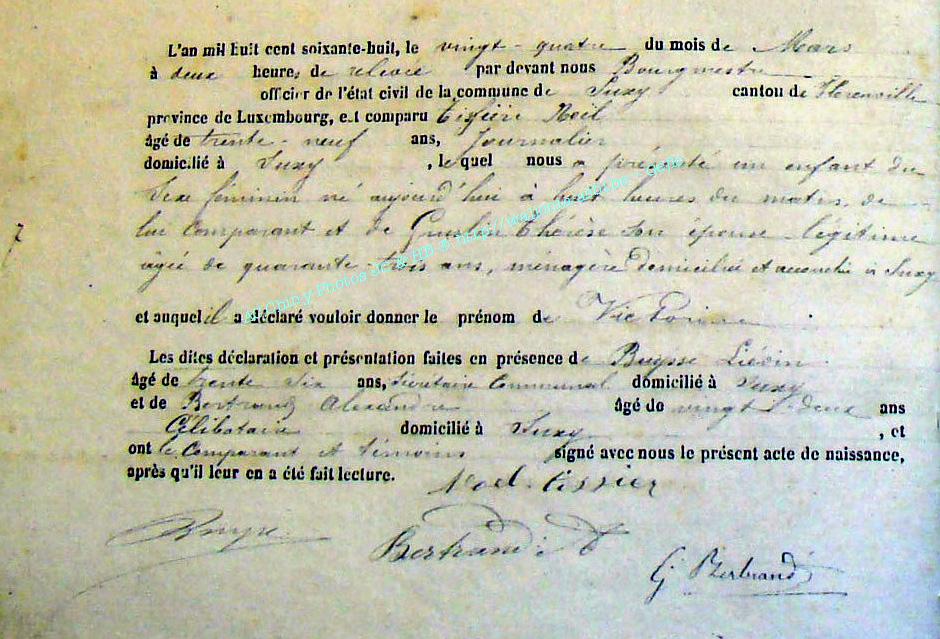 L'an mil huit cent soixante-huit, le vingt-quatre du mois de Mars
à deux heures de relevée par devant nous Bourgmestre
officier de l'état civil de la commune de Suxy canton de Florenville
province de Luxembourg, est comparu Tissier Noël
âgé de trente-neuf ans, Journalier
domicilié à Suxy, lequel nous a présenté un enfant du
Sexe féminin né aujourd'hui à huit heures du matin, de
7
lui comparant et de Guslin Thérèse son épouse légitime
âgée de quarante trois ans, ménagère domiciliée et accouchée à Suxy
et auquel il a déclaré vouloir donner le prénom de Victorine
Les dites déclaration et présentation faites en présence de Buysse Liévin
âgé de trente Six ans, Secrétaire Communal domicilié à Suxy
et de Bertrand Alexandre âgé de vingt-deux ans
Célibataire domicilié à Suxy, et
ont le Comparant et témoins signé avec nous le présent acte de naissance,
après qu'il leur en a été fait lecture.
Noel tissier
Buysse
Bertrand A
G Bertrand
Photos JC & HD © http://